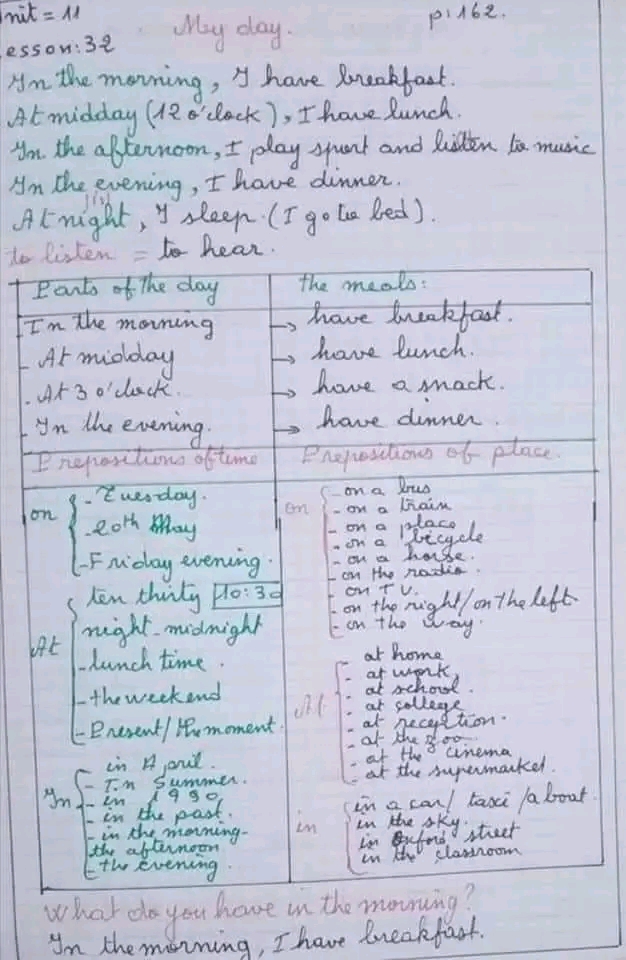 nit = 11
My day.
p: 162.
esson: 32
In the morning, I have breakfast.
At midday (12 o'clock), I have lunch.
In the afternoon, I play sport and listen to music
In the evening, I have dinner.
At night, I sleep. (I go to bed).
to listen = to hear.
Parts of the day
the meals:
In the morning → have breakfast.
- At midday → have lunch.
- At 3 o'clock. → have a snack.
- In the evening. → have dinner.
Prepositions of time
Prepositions of place.
on
- Tuesday.
- 20th May
- Friday evening.
At
ten thirty 10:30
night - midnight
- lunch time.
- the weekend
- Present / the moment.
In
- in April.
- In Summer.
- in 1990
- in the past.
- in the morning-
the afternoon
- the evening.
on
- on a bus
- on a train
- on a place
- on a bicycle
- on a horse.
- on the radio.
- on T.V.
- on the right / on the left
- on the way.
At
at home
- at work
- at school.
- at college
- at reception.
- at the zoo
- at the cinema
- at the supermarket.
in
in a car / taxi / a boat.
in the sky.
in Oxford street
in the classroom
What do you have in the morning?
In the morning, I have breakfast.